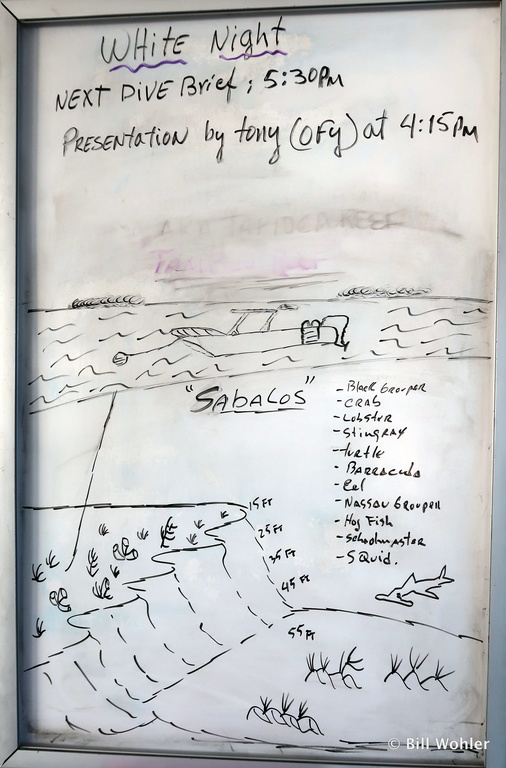 White Night
NEXT DIVE Brief ; 5:30PM
PRESENTATION by tony (OFY) at 4:15PM
AKA TAPIOCA REEF
"SABALOS"
- Black Grouper
- CRAB
- Lobster
- Stingray
- turtle
- Barracuda
- Eel
- Nassau Grouper
- Hog Fish
- Schoolmaster
- SQuid.
15 Ft
25 Ft
35 Ft
45 Ft
55 Ft
© Bill Wohler